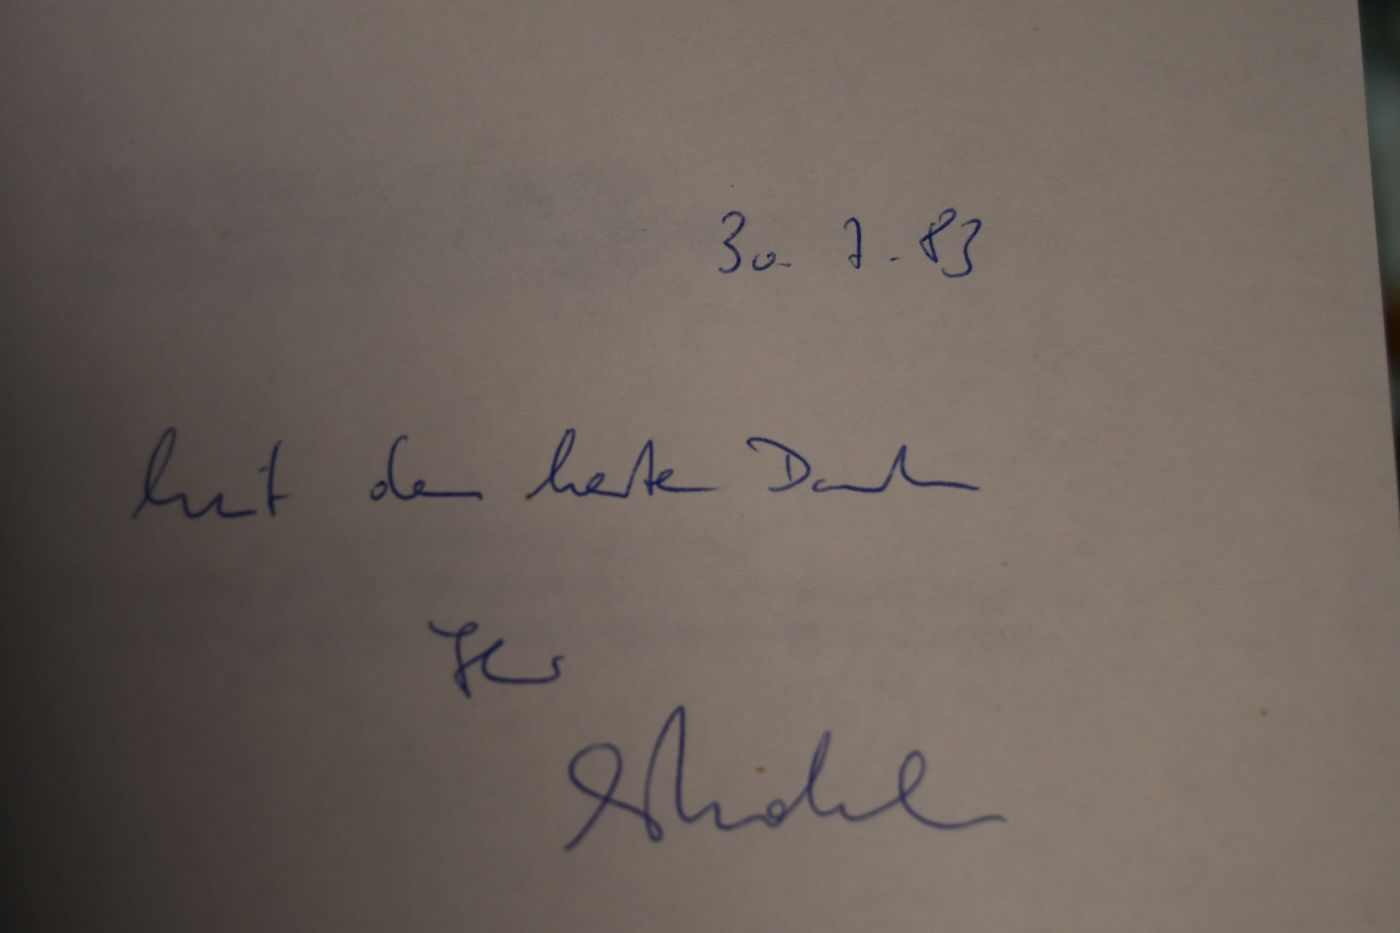 30. 7. 83
Mit dem besten Dank
Ihr